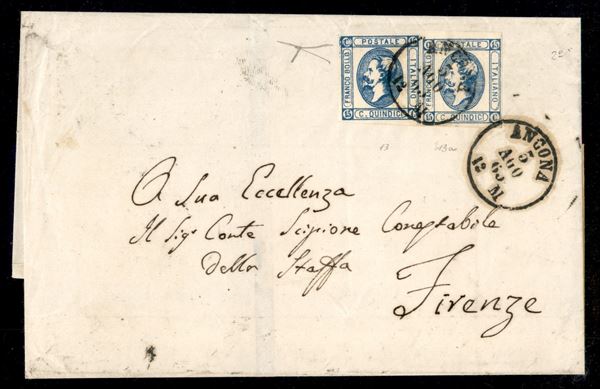 C POSTALE 15
FRANCO BOLLO
ITALIANO
15 C. QUINDICI C
POSTALE 15
FRANCO BOLLO
ITALIANO
15 C. QUINDICI C
ANCONA
5
AGO
63
12 M
A Sua Eccellenza
Il Sigr Conte Scipione Conestabile
Della Staffa
Firenze
13